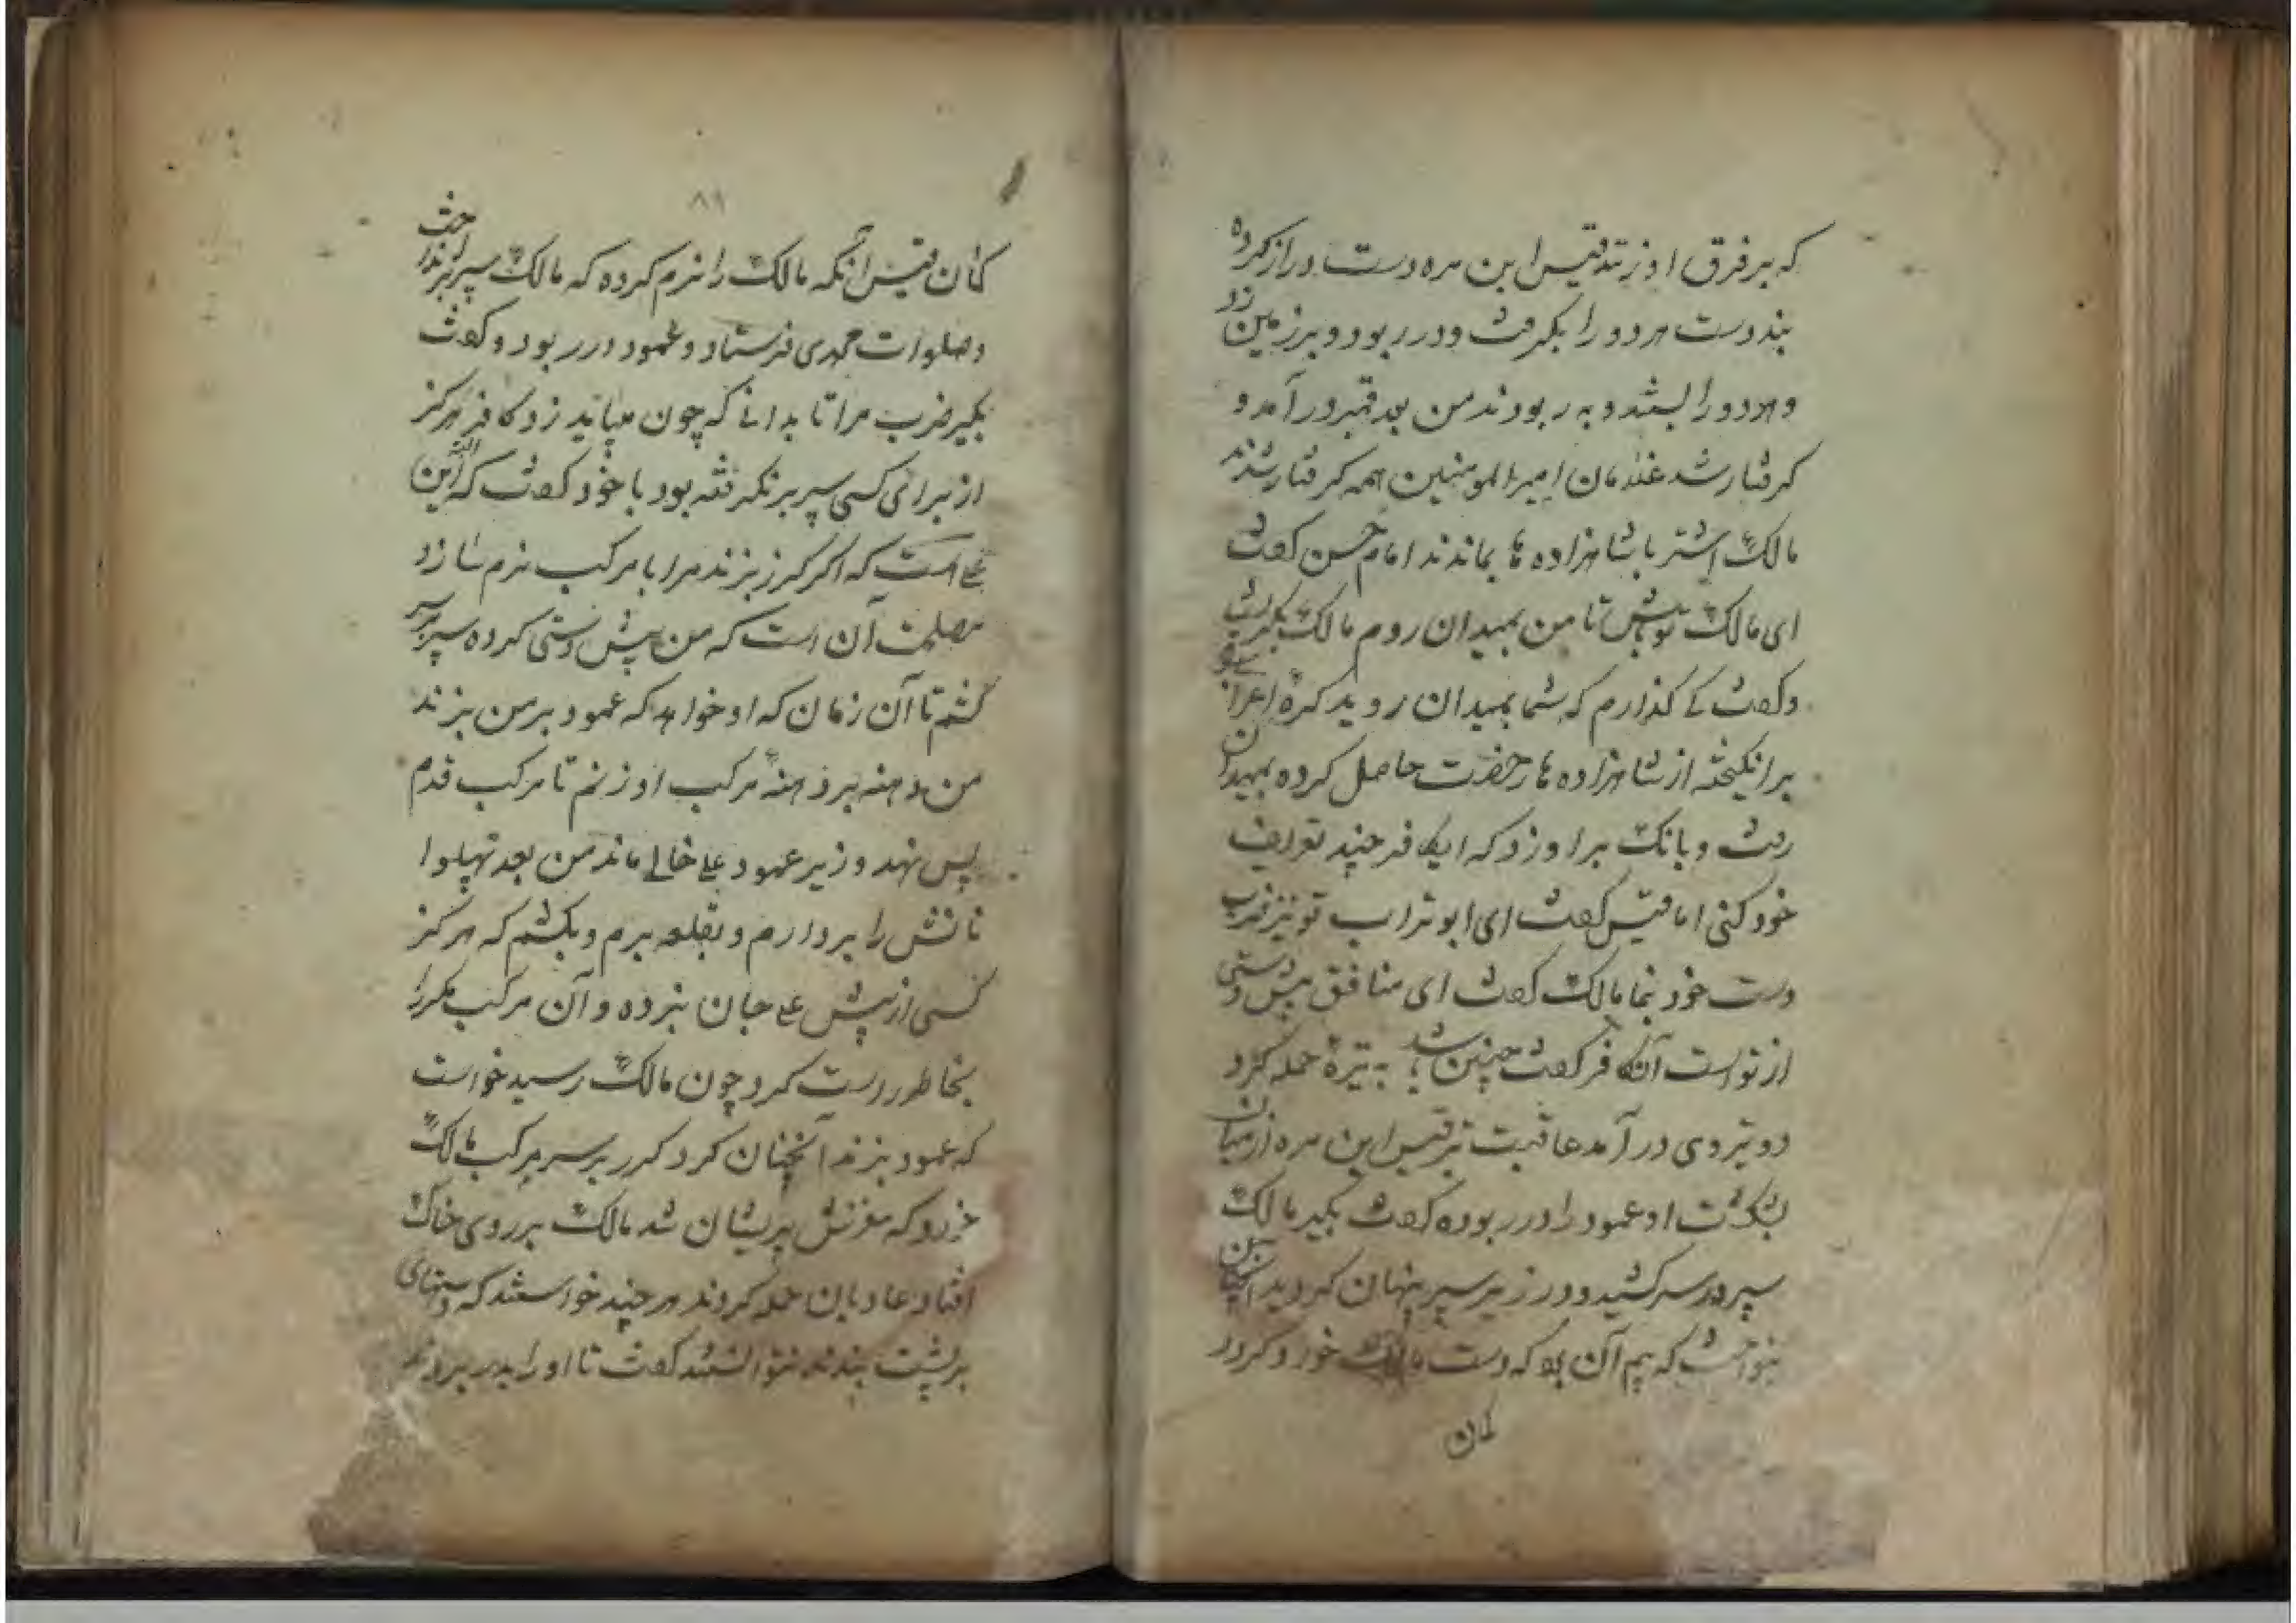 که بر فرق او زند قیس ابن مره دست دراز کرده
بند دست هر دو را بگرفت و در ربود و بر زمین زد
و هر دو را بستند و به ربودند من بعد قمبر در آمد و
گرفتار شد غلامان امیرالمومنین همه گرفتار شدند
مالک اشتر با شاهزاده ها بماندند امام حسن گفت
ای مالک تو باش تا من بمیدان روم مالک بگریست
و گفت کے گذارم که شما بمیدان روید کره
برانگیخته از شاهزاده ها رخصت حاصل کرده بمیدان
رفت و بانک بر او زد که ایکافر چند تعریف
خود کنی اما قیس گفت ای ابوتراب تو نیز ضرب
دست خود نما مالک گفت ای منافق پیش دستی
از تو است آن کافر گفت چنین باشد به نیزه حمله کرد
در آمد عاقبت قیس ابن مره از میان
بشکست او عمود را در ربوده گفت بگیر مالک
سپر در سر کشید و در زیر سپر پنهان گردید آنچنان
بنواخت که بیم آن بود که دست مالک خورد گردد
کمان
۸۹
کمان قیس آنکه مالک را نرم کرده که مالک سپر بر انداخت
و صلوات محمدی فرستاد و عمود در ربود و گفت
بگیر ضرب مرا تا بدانی که چون میباید زد کافر هرگز
از برای کسی سپر بر نگرفته بود با خود گفت که این
علی است که اگر گرز بزند مرا با مرکب نرم سازد
مصلحت آن است که من پیش دستی کرده سپر بر سر
کشم تا آن زمان که او خواهد که عمود بر من بزند
من دهنه بر دهنهٔ مرکب او زنم تا مرکب قدم
پس نهد و زیر عمود علی خالی ماند من بعد
را بردارم و بقلعه برم و بکشم که هرگز
کسی از پیش علی جان نبرده و آن مرکب مکر را
بخاطر راست کرد چون مالک رسید خواست
که عمود بزند آنچنان کرد گرز بر سر مرکب مالک
خورد که مغزش پریشان شد مالک بر روی خاک
افتاد عادیان حمله کردند هر چند خواستند که دستهای
بر پشت بندند نتوانستند گفت تا او را بدر بردند